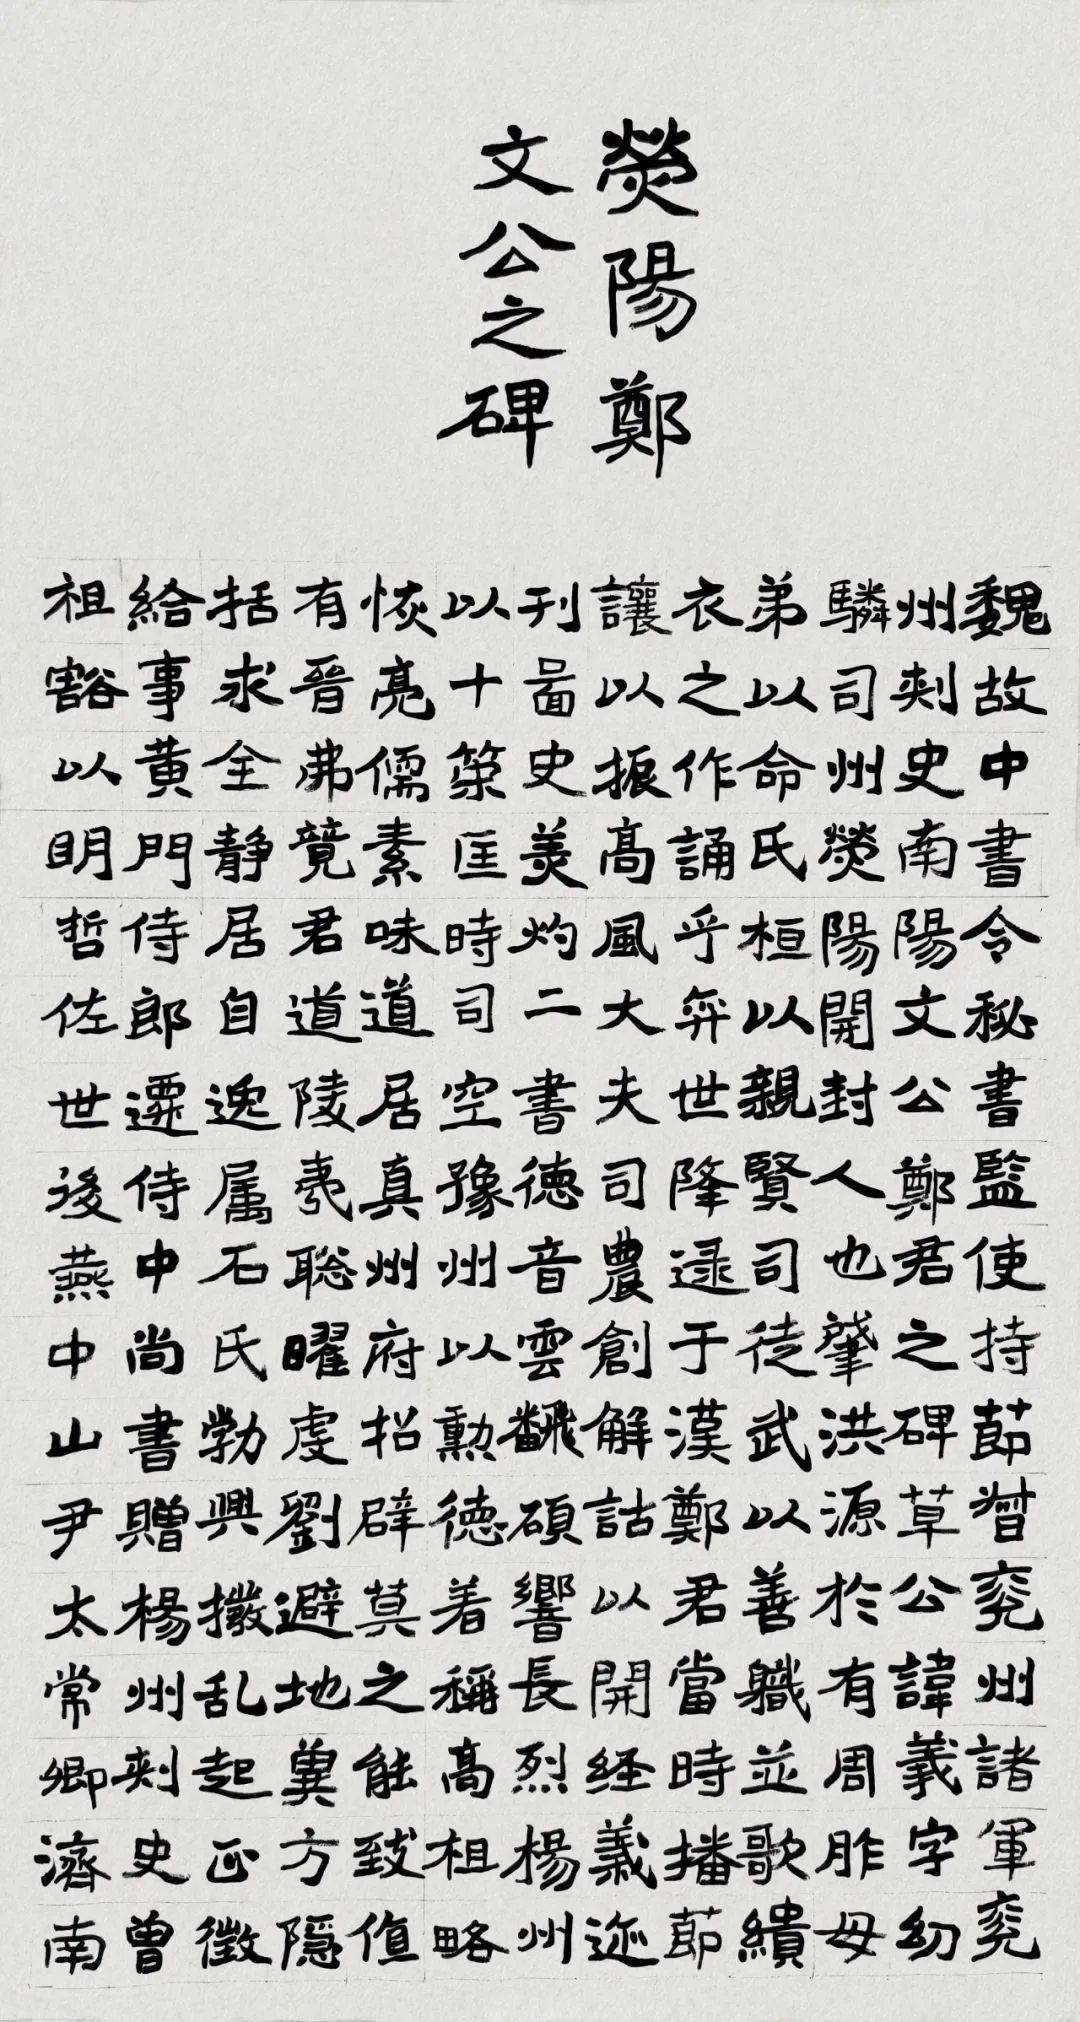 熒陽鄭
文公之碑
魏故中書令秘書監使持莭督兖州諸軍兖
州刾史南陽文公鄭君之碑草公諱羲字幼
驎司州熒陽開封人也肇洪源於有周胙母
弟以命氏桓以親賢司徒武以善職並歌繢
衣之作誦乎弈世降逯于漢鄭君當時播莭
讓以振高風大夫司農創解詁以開経義迹
刊啚史美灼二書德音雲飜碩響長烈楊州
以十策匡時司空豫州以勲德著稱高祖略
恢亮儒素味道居真州府招辟莫之能致值
有晉弗竟君道陵夷聡曜虔劉避地兾方隱
括求全静居自逸属石氏勃興撥乱起正徵
給事黄門侍郎遷侍中尚書贈楊州刾史曾
祖豁以明哲佐世後燕中山尹太常卿濟南